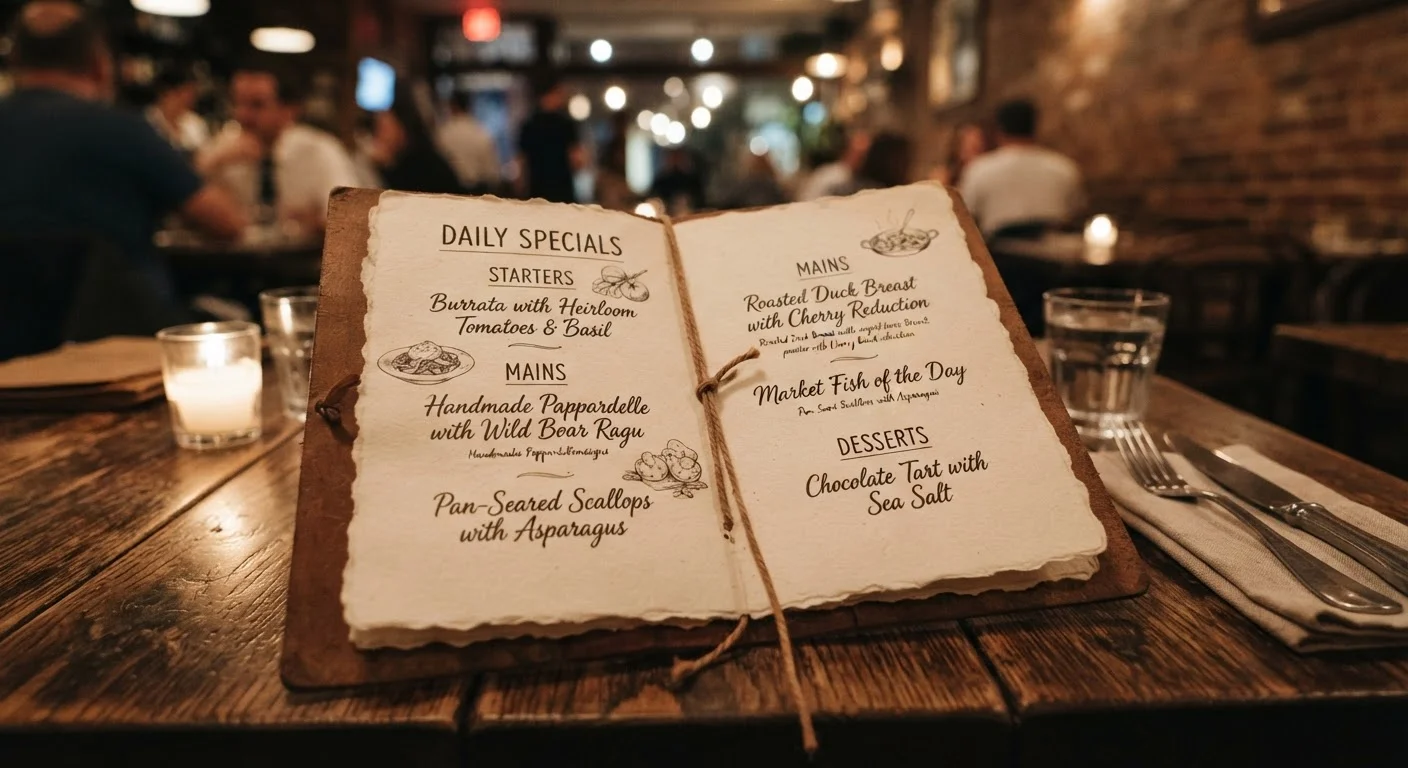 DAILY SPECIALS
STARTERS
Burrata with Heirloom
Tomatoes & Basil
MAINS
Handmade Pappardelle
with Wild Boar Ragu
Pan-Seared Scallops
with Asparagus
MAINS
Roasted Duck Breast
with Cherry Reduction
Market Fish of the Day
with Asparagus
DESSERTS
Chocolate Tart with
Sea Salt